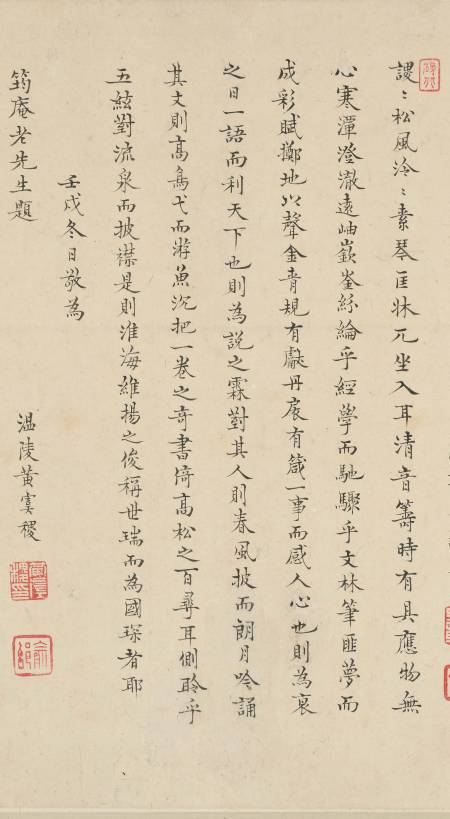 謖〻松風泠〻素琴匡牀兀坐入耳清音籌時有具應物無
心寒潭澄澈遠岫嶔崟紛綸乎經學而馳驟乎文林筆匪夢而
成彩賦擲地以聲金青規有獻丹扆有箴一事而感人心也則為衰
之日一語而利天下也則為說之霖對其人則春風披而朗月吟誦
其文則高鳥弋而游魚沉把一卷之奇書倚高松之百尋耳側聆乎
五絃對流泉而披襟是則淮海維揚之俊稱世瑞而為國琛者耶
壬戌冬日敬為
筠庵老先生題
溫陵黃虞稷
俞邰